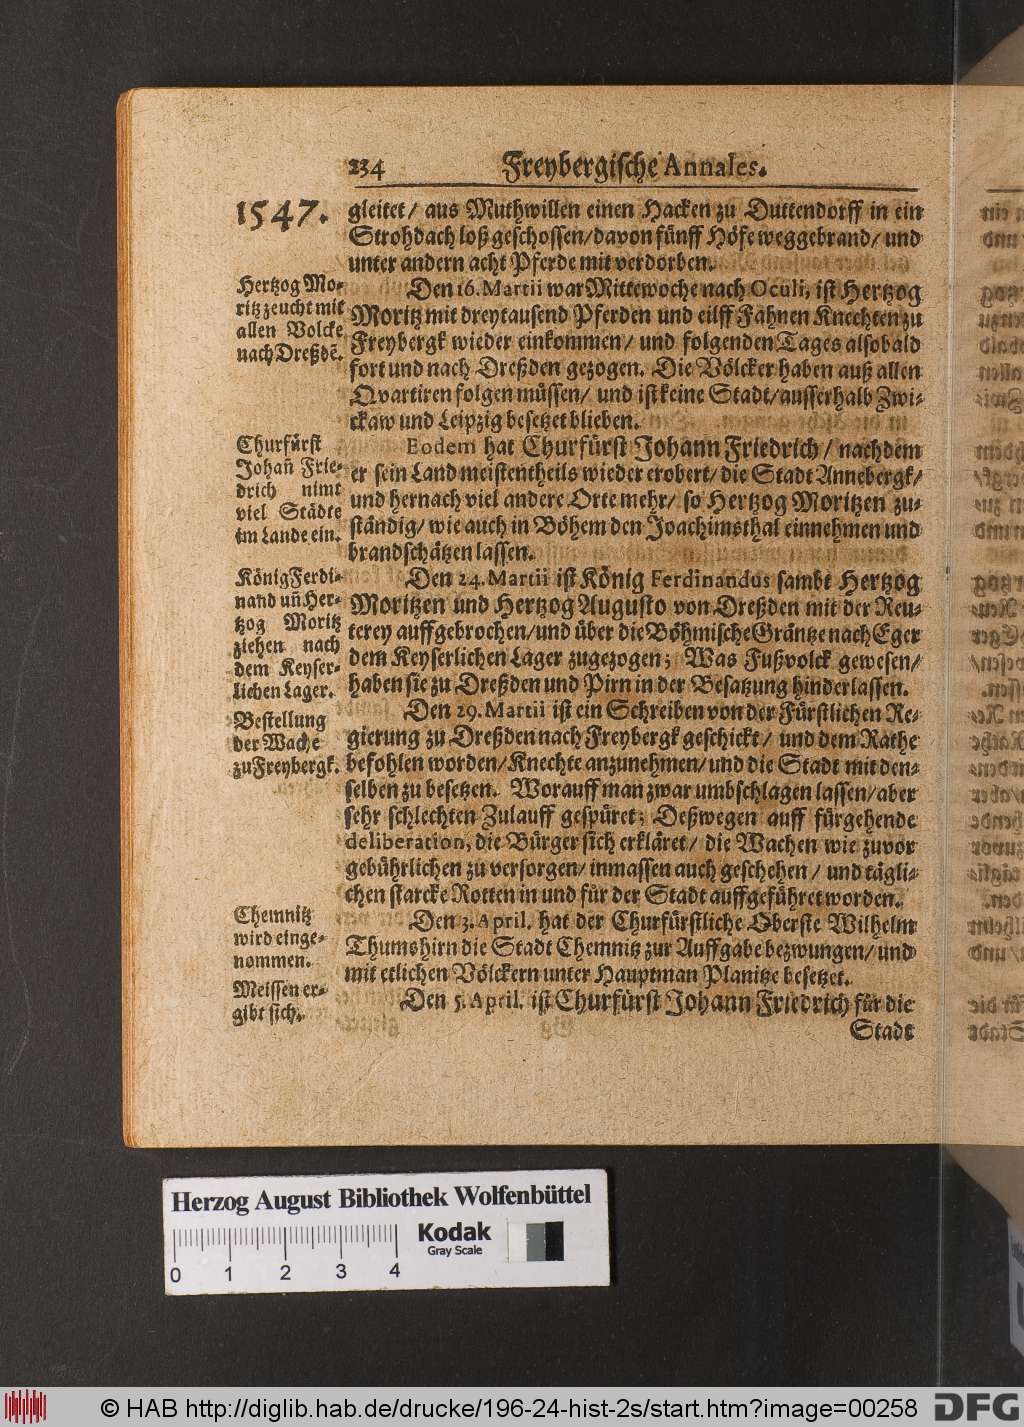 234 Freybergische Annales.
1547.
gleitet/ aus Muthwillen einen Hacken zu Duttendorff in ein
Strohdach loß geschossen/davon fünff Höfe weggebrand/ und
unter andern acht Pferde mit verdorben.
Hertzog Mo-
ritz zeucht mit
allen Volcke
nach Dreßdẽ.
Den 16. Martii war Mittewoche nach Oculi, ist Hertzog
Moritz mit dreytausend Pferden und eilff Fahnen Knechten zu
Freybergk wieder einkommen/ und folgenden Tages alsobald
fort und nach Dreßden gezogen. Die Völcker haben auß allen
Qvartiren folgen müssen/ und ist keine Stadt/ausserhalb Zwi-
ckaw und Leipzig besetzet blieben.
Churfürst
Johañ Frie-
drich nimt
viel Städte
im Lande ein.
Eodem hat Churfürst Johann Friedrich/ nachdem
er sein Land meistentheils wieder erobert/ die Stadt Annebergk/
und hernach viel andere Orte mehr/ so Hertzog Moritzen zu-
ständig/ wie auch in Böhem den Joachimsthal einnehmen und
brandschätzen lassen.
König Ferdi-
nand uñ Her-
tzog Moritz
ziehen nach
dem Keyser-
lichen Lager.
Den 24. Martii ist König Ferdinandus sambt Hertzog
Moritzen und Hertzog Augusto von Dreßden mit der Reu-
terey auffgebrochen/und über die Böhmische Gräntze nach Eger
dem Keyserlichen Lager zugezogen; Was Fußvolck gewesen/
haben sie zu Dreßden und Pirn in der Besatzung hinderlassen.
Bestellung
der Wache
zu Freybergk.
Den 29. Martii ist ein Schreiben von der Fürstlichen Re-
gierung zu Dreßden nach Freybergk geschickt/ und dem Rathe
befohlen worden/Knechte anzunehmen/und die Stadt mit den-
selben zu besetzen. Worauff man zwar umbschlagen lassen/aber
sehr schlechten Zulauff gespüret; Deßwegen auff fürgehende
deliberation, die Bürger sich erkläret/ die Wachen wie zuvor
gebührlichen zu versorgen/ inmassen auch geschehen/ und tägli-
chen starcke Rotten in und für der Stadt auffgeführet worden.
Chemnitz
wird einge-
nommen.
Den 3. April. hat der Churfürstliche Oberste Wilhelm
Thumshirn die Stadt Chemnitz zur Auffgabe bezwungen/ und
mit etlichen Völckern unter Hauptman Planitze besetzet.
Meissen er-
gibt sich.
Den 5. April. ist Churfürst Johann Friedrich für die
Stadt
Herzog August Bibliothek Wolfenbüttel
0 1 2 3 4
Kodak
Gray Scale
© HAB http://diglib.hab.de/drucke/196-24-hist-2s/start.htm?image=00258
DFG